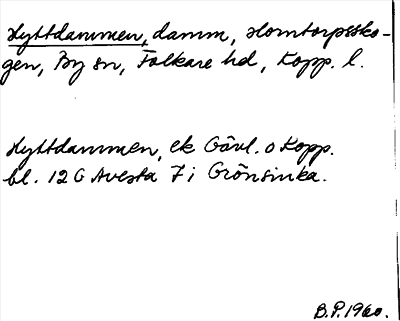 Hyttdammen, damm, Horntorpssko-
gen, By sn, Folkare hd, Kopp. l.
Hyttdammen, ek Gävl. o Kopp.
bl. 12 G Avesta 7 i Grönsinka.
B.P. 1960.